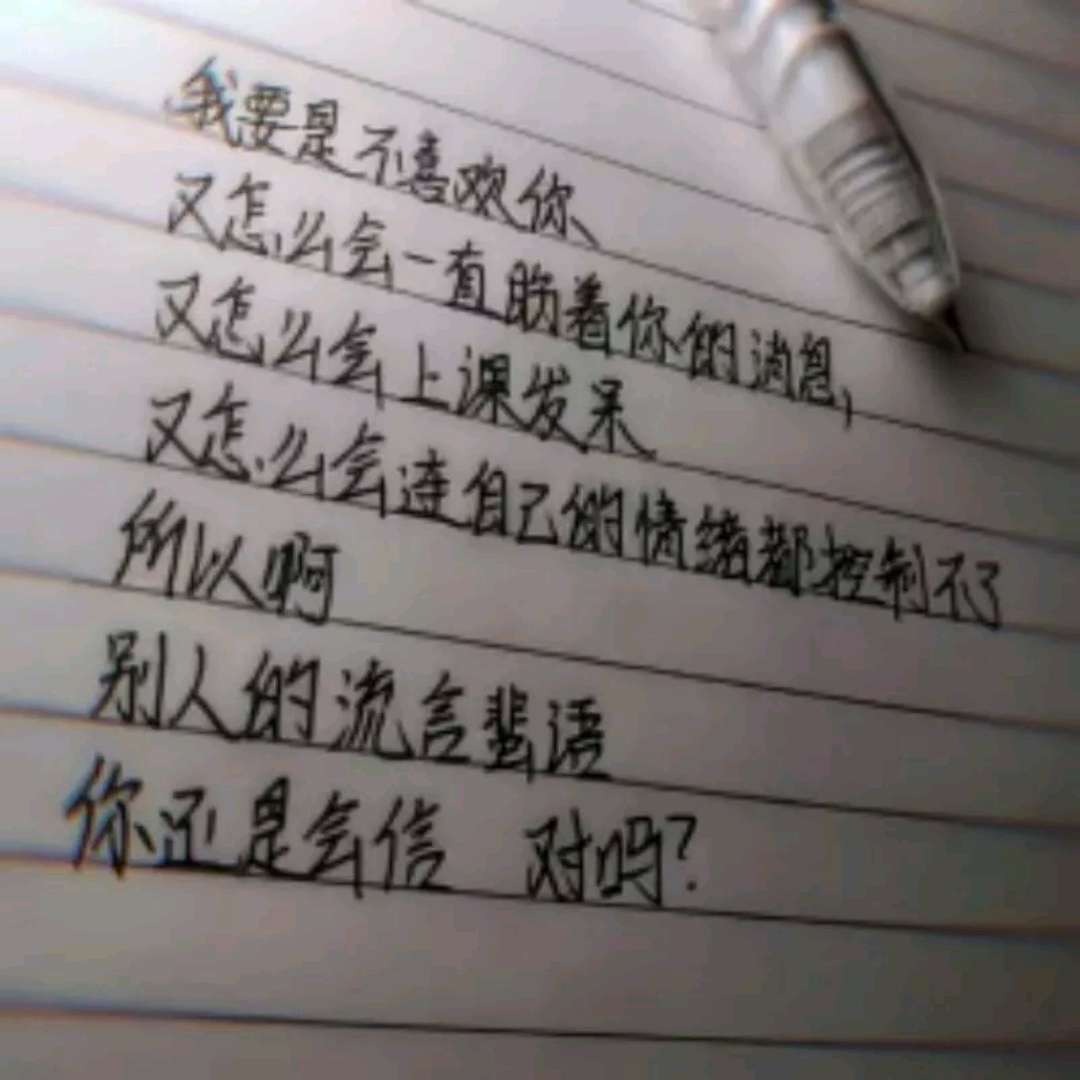 我要是不喜欢你
又怎么会一直盼着你的消息,
又怎么会上课发呆
又怎么会连自己的情绪都控制不了
所以啊
别人的流言蜚语
你还是会信 对吗?